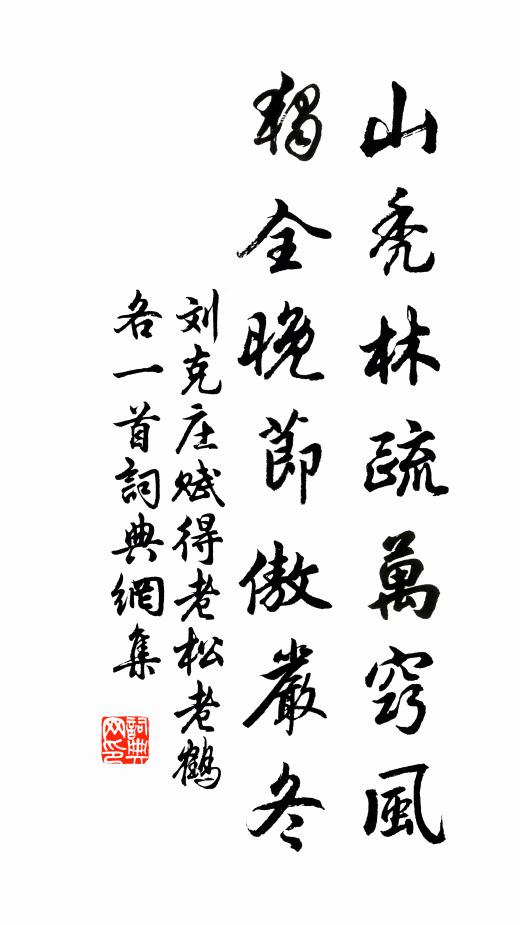 山禿林疏萬竅風
獨全晚節傲嚴冬
刘克庄赋得老松老鶴
各一首詞典網集
詞典
网印